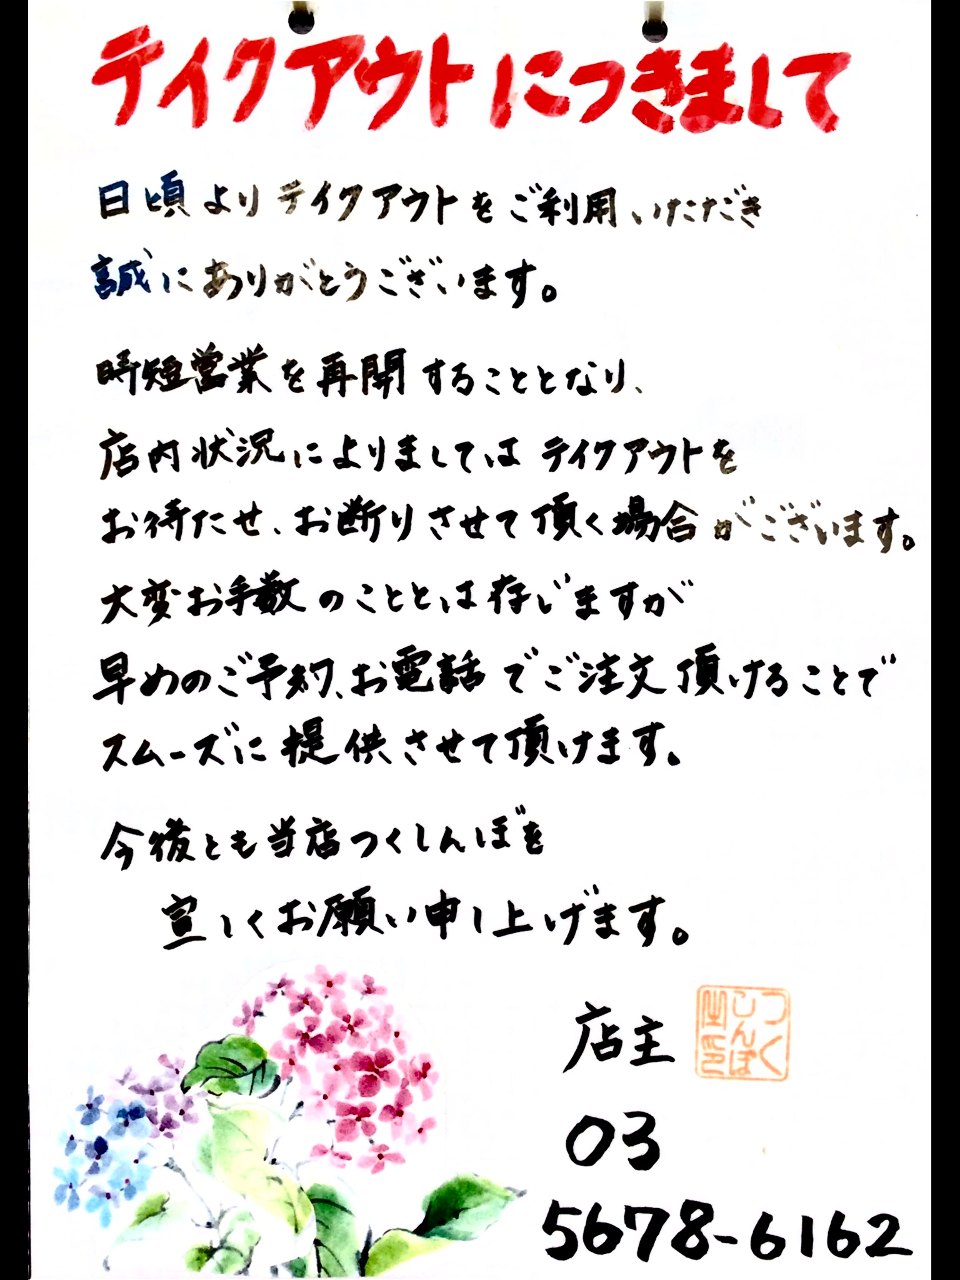 テイクアウトにつきまして
日頃よりテイクアウトをご利用いただき
誠にありがとうございます。
時短営業を再開することとなり、
店内状況によりましてはテイクアウトを
お待たせ、お断りさせて頂く場合がございます。
大変お手数のこととは存じますが
早めのご予約、お電話でご注文頂けることで
スムーズに提供させて頂けます。
今後とも当店つくしんぼを
宜しくお願い申し上げます。
店主
つくしんぼ之印
03
5678-6162